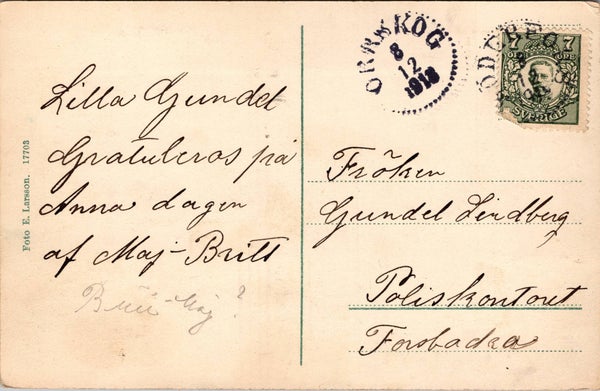 Lilla Gundel
Gratuleras på
Anna dagen
af Maj-Britt
Foto E. Larsson. 17703
8
12
1918
7 7
SVERIGE
Fröken
Gundel Lindberg
Poliskontoret
Forsbacka